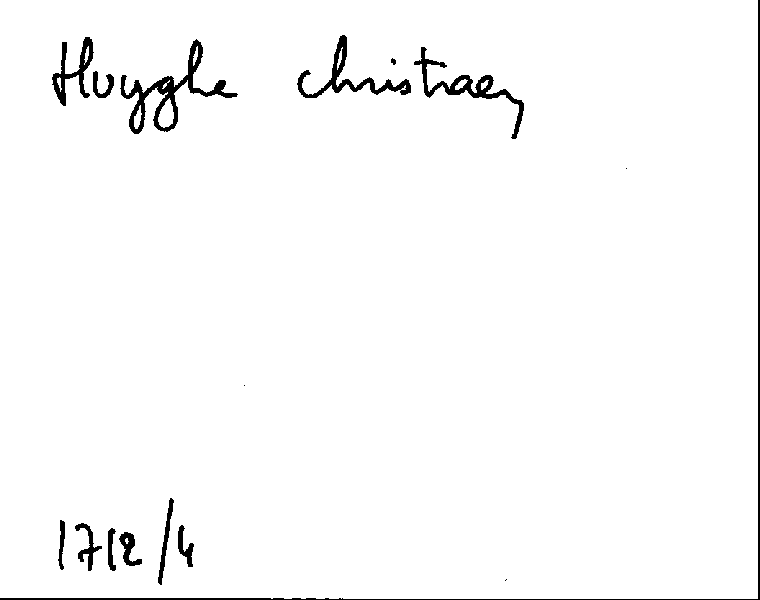 Huyghe christiaen
1712/4